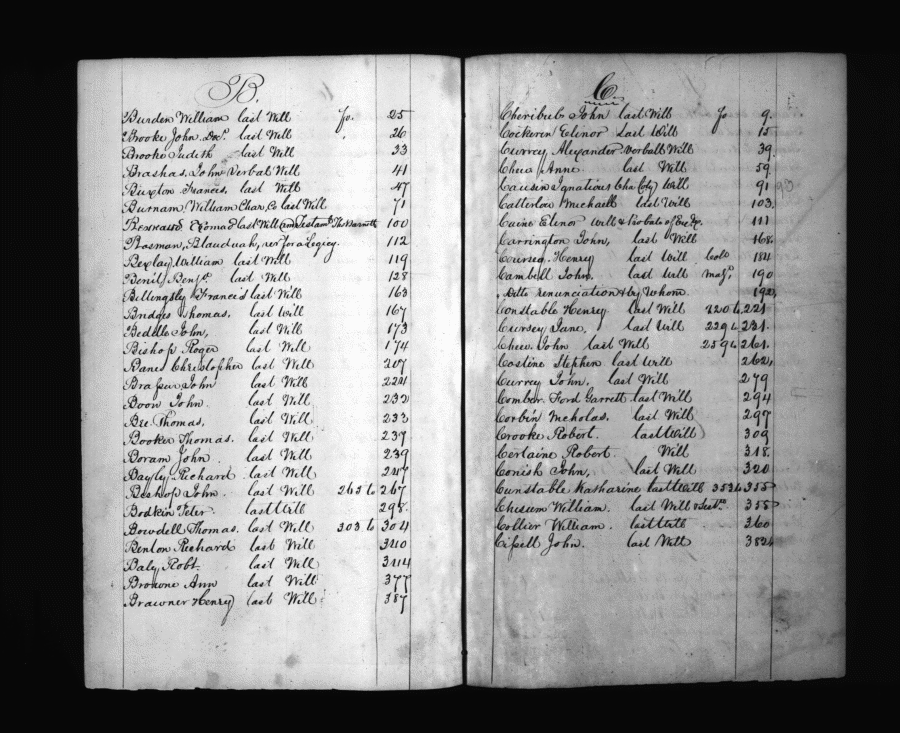 B.
Burden William last Will fo. 25
Brooke John. Doc.r last Will 26
Brooke Judith last Will 33
Brashas, John Verbal Will 41
Buxton Francis, last Will 47
Burnam, William Char, Co last Will 71
last Will and Testamt Tho Warnett 100
Bosman, Blauduah, for a Legicy. 112
Bexlay William last Will 119
Benit Benj.n last Will 128
Billongsley Francis last Will 163
Bridges Thomas, last Will 167
Beddle John, last Will 173
Bishop Roger last Will 174
Banes Christopher last Will 207
Brasseur John last Will 224
Boon John. last Will 232
Bee Thomas, last Will 233
Booker Thomas. last Will 237
Boram John last Will 239
Bayly Richard last Will 247
Bishop John. last Will 265 to 267
Bodkin Peter. last Will 298.
Bowdell Thomas. last Will 303 to 304
Benton Richard last Will 340
Baly Robt. last Will 344
Browne Ann last Will 377
Brawner Henry last Will 387
C
Cheribub John last Will fo 9.
Cockeren Elinor Last Will 15
Currey Alexander Verball Will 39.
Chew Anne last Will 59.
Causin Ignatious Cha (Co) Will 91 93
Catterlon Michaell last Will 103.
Caine Elenor Will & Probate of Exc. 111
Carrington John, last Will 168.
Coursey. Henry last Will Colo 184
Cambell John, last Will Maj.r 190
Ditto renunciation & by Whom. 192,
Constable Henry last Will 220 to 221
Cursey Jane, last Will 229 to 231.
Chew John last Will 259 to 261.
Costine Stephen last will 262,
Currey John. last Will 279
Comber Ford Garrett last Will 294
Corbin Nicholas. last Will 297
Crooke Robert. last Will 309
Certaine Robert. Will 318.
Conish John, last Will 320
Cunstable Katharine last Will 353 to 355
Chesum William. last Will & Test.mt 355
Collier William. last Will 360
Cissell John. last Will 382